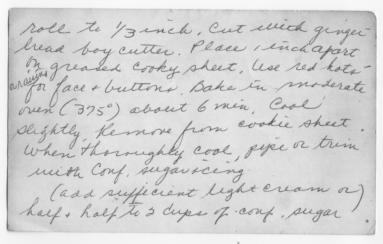 roll to 1/3 inch. Cut with ginger
bread boy cutter. Place 1 inch apart
on greased cooky sheet. Use red hots
or raisins for face & buttons. Bake in moderate
oven (375°) about 6 min. Cool
slightly. Remove from cookie sheet.
When thoroughly cool, pipe or trim
with Conf. sugar icing
(add sufficient light cream or)
half & half to 2 cups of conf. sugar